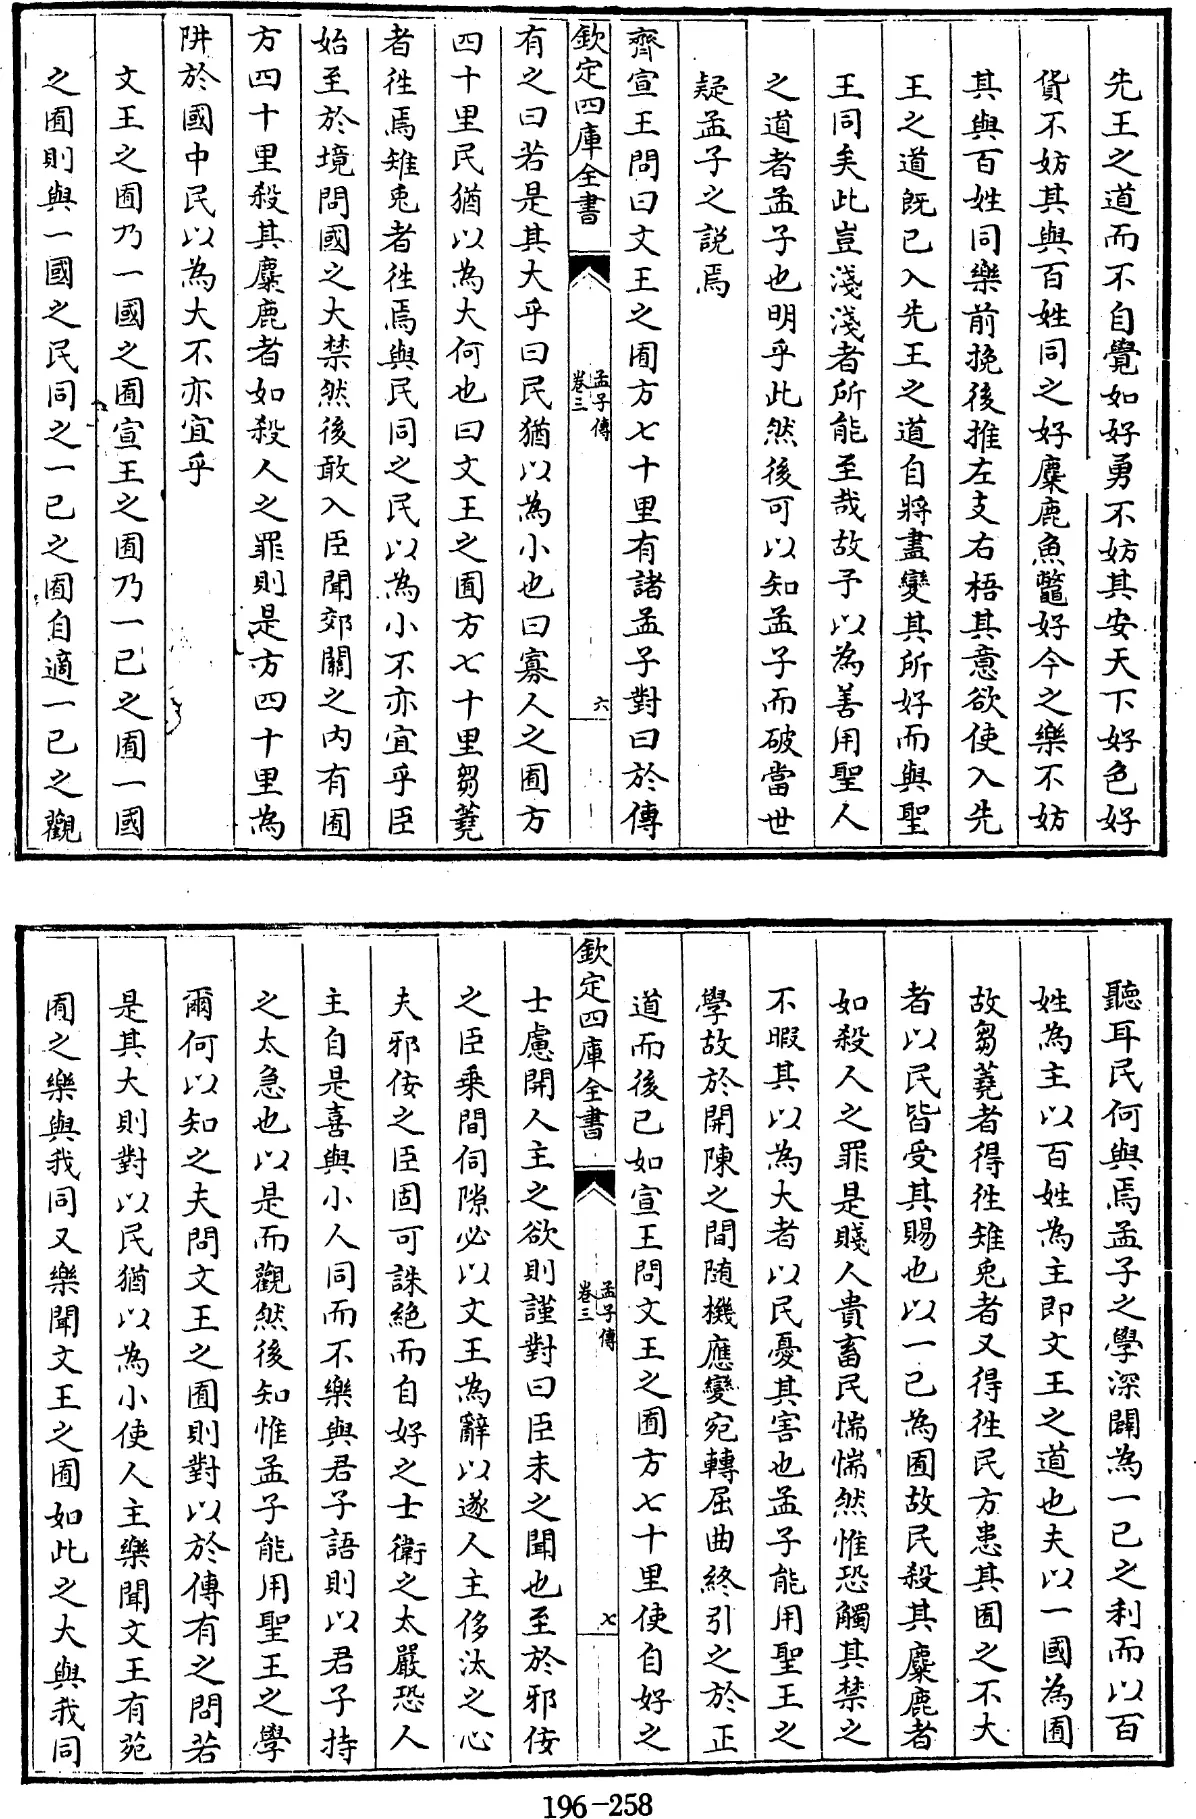 先王之道而不自覺如好勇不妨其安天下好色好
貨不妨其與百姓同之好麋鹿魚鼈好今之樂不妨
其與百姓同樂前挽後推左支右梧其意欲使入先
王之道既已入先王之道自將盡變其所好而與聖
王同矣此豈淺淺者所能至哉故予以為善用聖人
之道者孟子也明乎此然後可以知孟子而破當世
疑孟子之說焉
齊宣王問曰文王之囿方七十里有諸孟子對曰於傳
欽定四庫全書
孟子傳
卷三
六
有之曰若是其大乎曰民猶以為小也曰寡人之囿方
四十里民猶以為大何也曰文王之囿方七十里芻蕘
者徃焉雉兎者徃焉與民同之民以為小不亦宜乎臣
始至於境問國之大禁然後敢入臣聞郊關之内有囿
方四十里殺其麋鹿者如殺人之罪則是方四十里為
阱於國中民以為大不亦宜乎
文王之囿乃一國之囿宣王之囿乃一己之囿一國
之囿則與一國之民同之一已之囿自適一已之觀
聽耳民何與焉孟子之學深闢為一已之利而以百
姓為主以百姓為主即文王之道也夫以一國為囿
故芻蕘者得徃雉兎者又得徃民方患其囿之不大
者以民皆受其賜也以一已為囿故民殺其麋鹿者
如殺人之罪是賤人貴畜民惴惴然惟恐觸其禁之
不暇其以為大者以民憂其害也孟子能用聖王之
學故於開陳之間随機應變宛轉屈曲終引之於正
道而後已如宣王問文王之囿方七十里使自好之
欽定四庫全書
孟子傳
卷三
七
士慮開人主之欲則謹對曰臣未之聞也至於邪佞
之臣乗間伺隙必以文王為辭以遂人主侈汰之心
夫邪佞之臣固可誅絶而自好之士衛之太嚴恐人
主自是喜與小人同而不樂與君子語則以君子持
之太急也以是而觀然後知惟孟子能用聖王之學
爾何以知之夫問文王之囿則對以於傳有之問若
是其大則對以民猶以為小使人主樂聞文王有苑
囿之樂與我同又樂聞文王之囿如此之大與我同
196-258